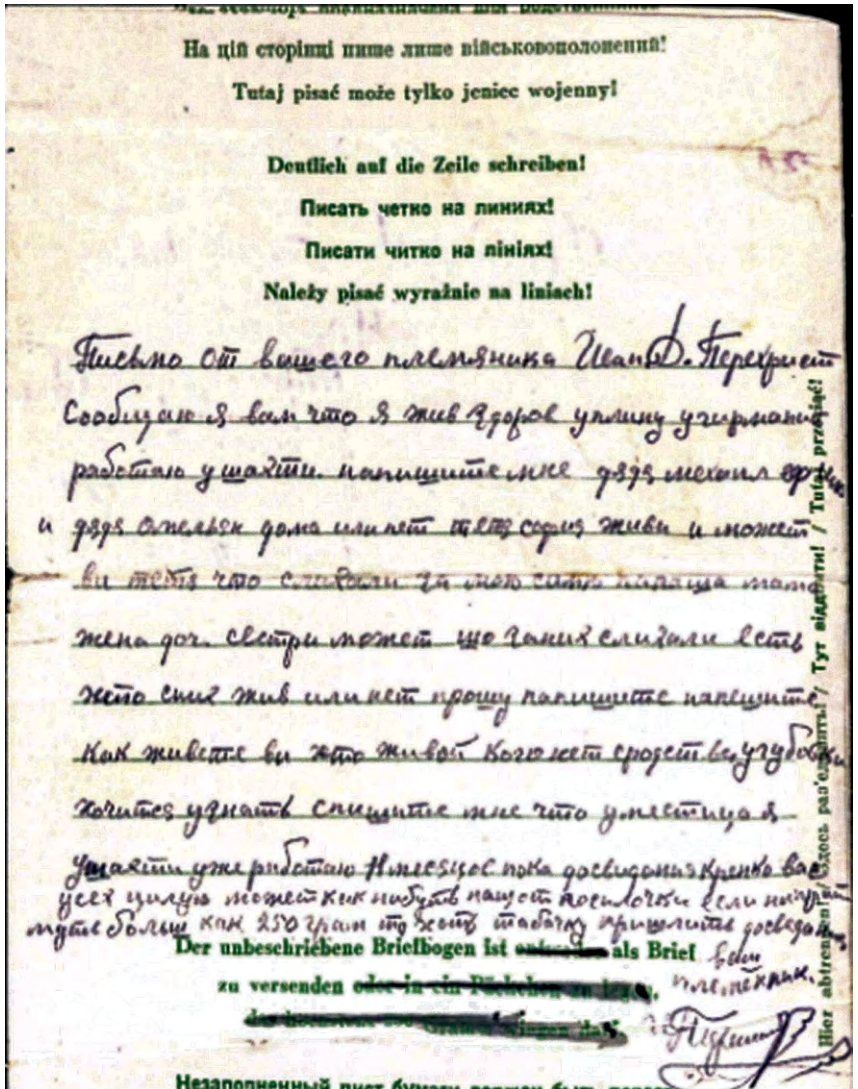 На цій сторінці пише лише військовополонений!
Tutaj pisać może tylko jeniec wojenny!
Deutlich auf die Zeile schreiben!
Писать четко на линиях!
Писати читко на лініях!
Należy pisać wyraźnie na liniach!
Письмо от вашего племяника Иван Д. Перехрист
Сообщаю я вам что я жив здоров уплину угирмании
работаю ушахти. напишите мне дядя мехаил
и дядя Омельян дома или нет тетя софия живи и можеть
ви тетя что слихали за мою папаша мама
жена доч. сестри может що заних слихали есть
хто сних жив или нет прошу напишите напешите
как живете ви хто живой кого нет сродства
хочится узнать спишите мне что уместица я
ушахти уже работаю 11 месяцов пока досвидания крепко вас
усех цилую может как нибуть нащот посилочки если
больш как 250 грам то хоть табачку пришлите
Der unbeschriebene Briefbogen ist als Brief
ваш
zu versenden
племеник.
Hier abtrennen! / Здесь раз'единить! / Тут відділити! / Tutaj przeciąć!